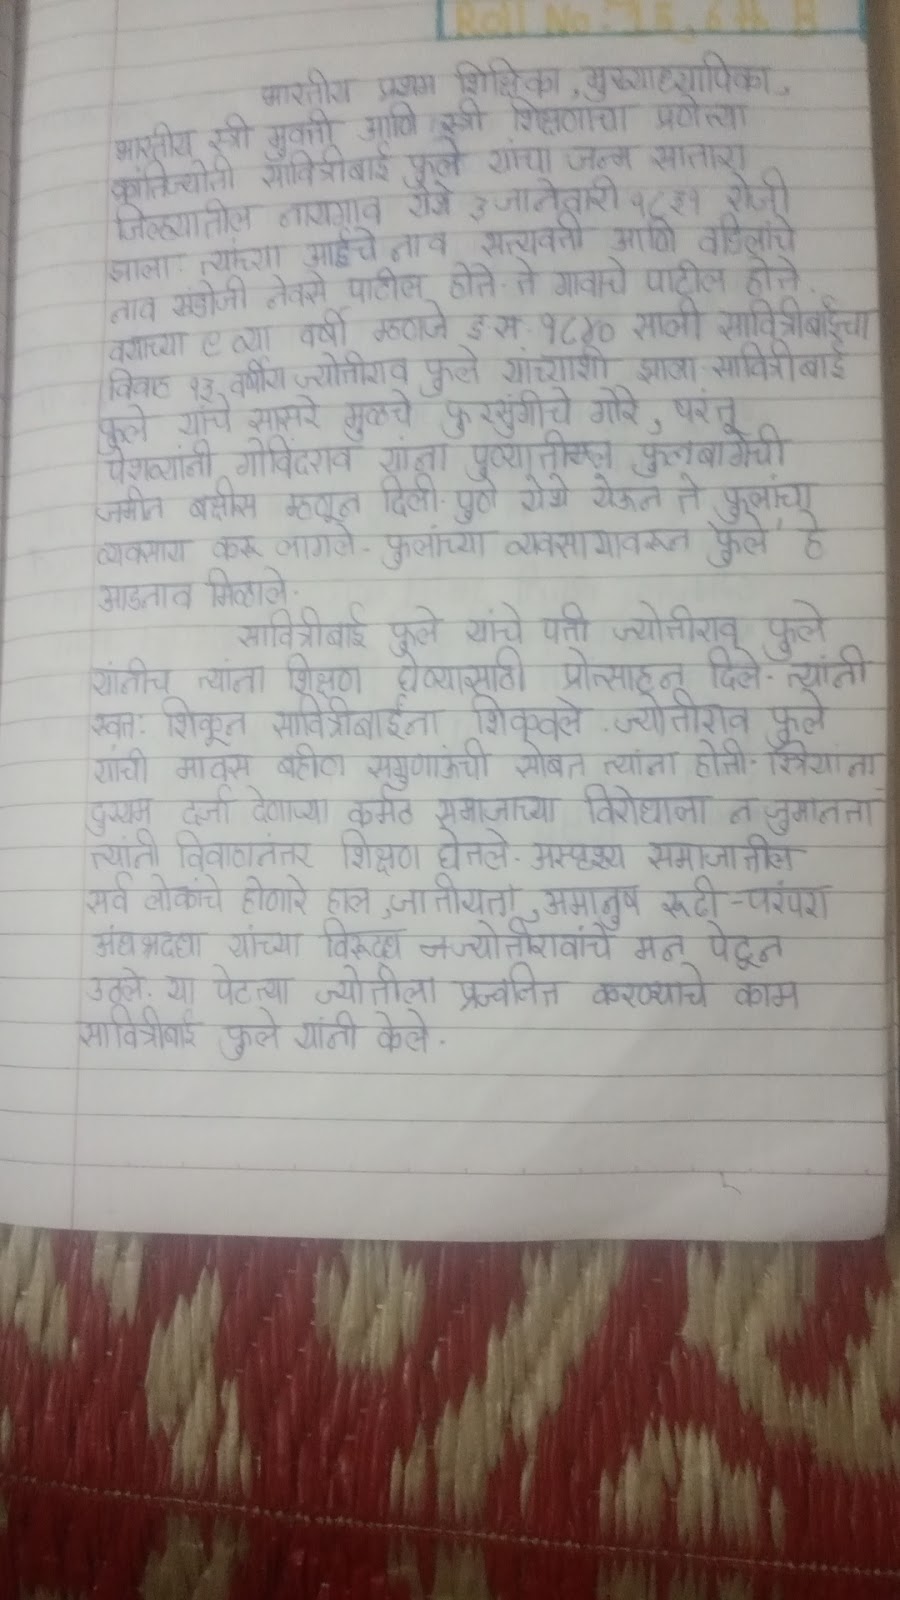 Roll No: 15, 6th B
भारतीय प्रथम शिक्षिका, मुख्याध्यापिका,
भारतीय स्त्री मुक्ती आणि स्त्री शिक्षणाचा प्रणेत्या
क्रांतिज्योती सावित्रीबाई फुले यांचा जन्म सातारा
जिल्ह्यातील नायगाव येथे ३ जानेवारी १८३१ रोजी
झाला. त्यांच्या आईचे नाव सत्यवती आणि वडिलांचे
नाव खंडोजी नेवसे पाटील होते. ते गावाचे पाटील होते.
वयाच्या ९ व्या वर्षी म्हणजे इ.स. १८४० साली सावित्रीबाईचा
विवाह १३ वर्षीय ज्योतीराव फुले यांच्याशी झाला. सावित्रीबाई
फुले यांचे सासरे मुळचे फुरसुंगीचे गोरे, परंतू
पेशव्यांनी गोविंदराव यांना पुण्यातील फुलबागेची
जमीन बक्षीस म्हणून दिली. पुणे येथे येऊन ते फुलांचा
व्यवसाय करू लागले. फुलांच्या व्यवसायावरून 'फुले' हे
आडनाव मिळाले.
सावित्रीबाई फुले यांचे पती ज्योतीराव फुले
यांनीच त्यांना शिक्षण घेण्यासाठी प्रोत्साहन दिले. त्यांनी
स्वत: शिकून सावित्रीबाईंना शिकवले. ज्योतीराव फुले
यांची मावस बहीण सगुणाऊंची सोबत त्यांना होती. स्त्रियांना
दुय्यम दर्जा देणाऱ्या कर्मठ समाजाच्या विरोधाला न जुमानता
त्यांनी विवाहानंतर शिक्षण घेतले. अस्पृश्य समाजातील
सर्व लोकांचे होणारे हाल, जातीयता, अमानुष रूढी-परंपरा
अंधश्रद्धा यांच्या विरूद्ध ज्योतीरावांचे मन पेटून
उठले. या पेटत्या ज्योतीला प्रज्वलित करण्याचे काम
सावित्रीबाई फुले यांनी केले.